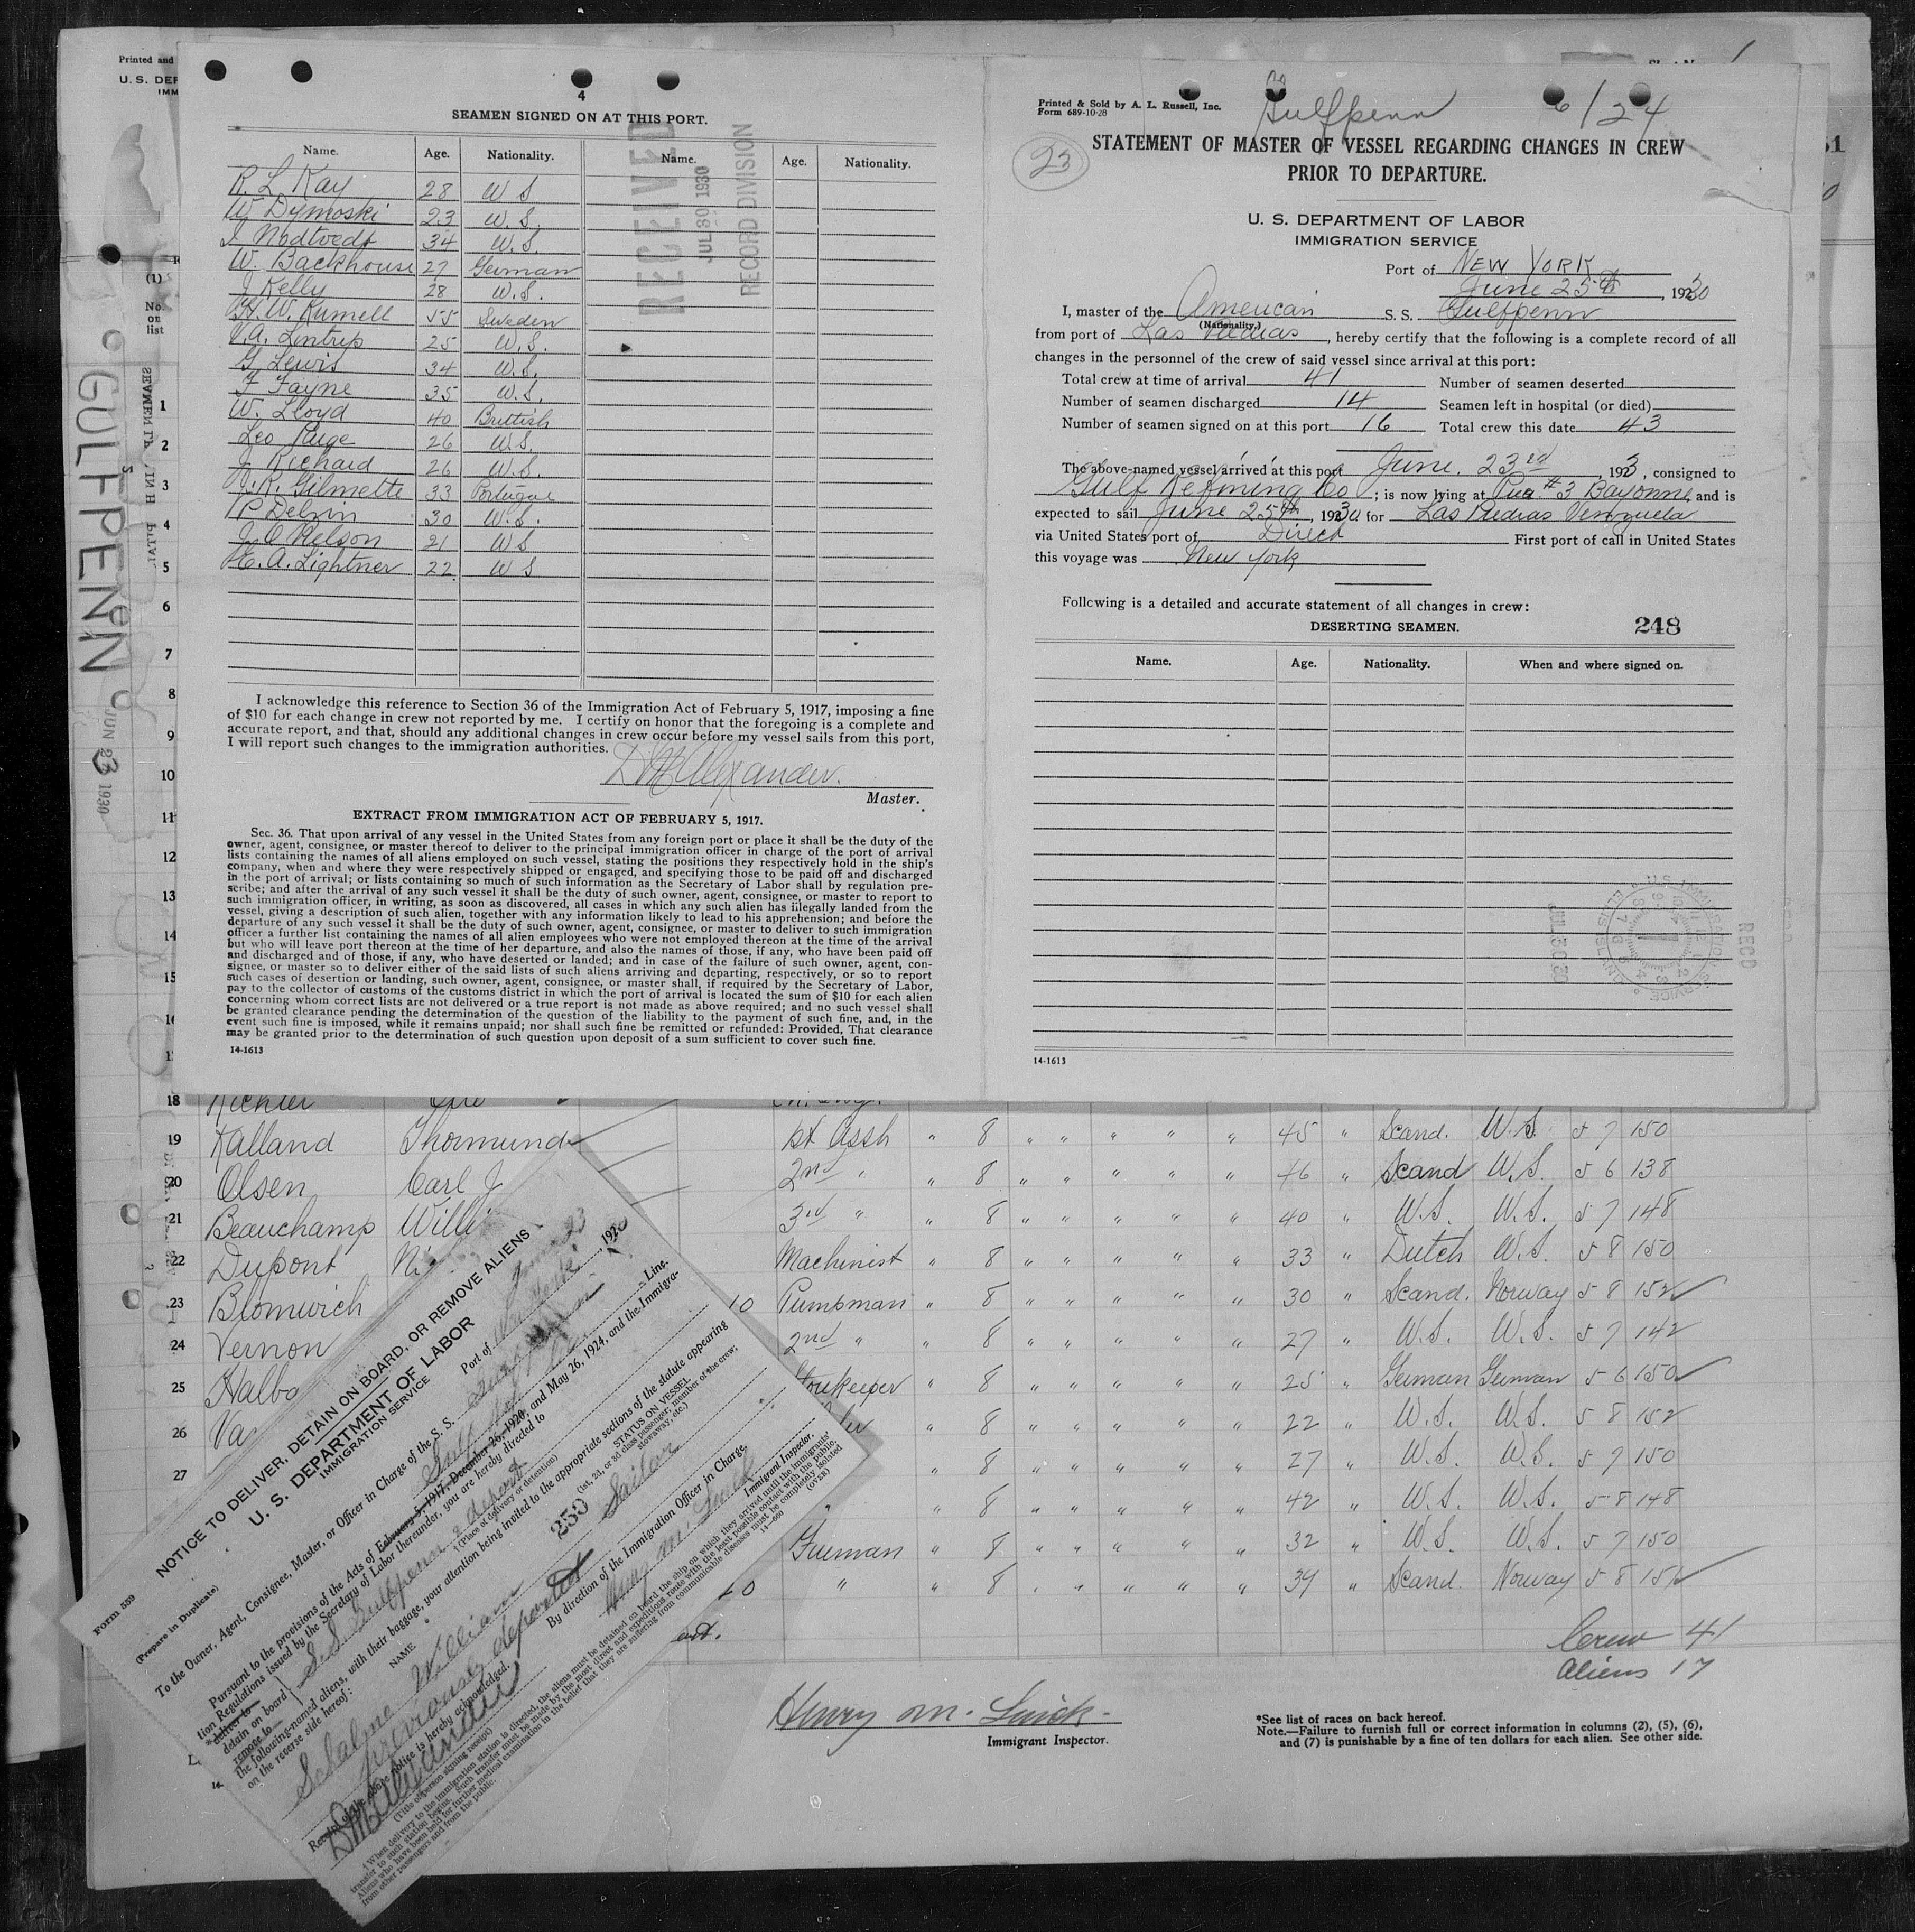 4
SEAMEN SIGNED ON AT THIS PORT.
Name. Age. Nationality. Name. Age. Nationality.
R. L. Kay 28 U S
W. Dymoski 23 U.S.
Nodtvedt 34 U.S.
W. Backhouse 27 German
J Kelly 28 U.S.
H. W. Kumell 55 Sweden
V. A. Lintrip 25 U.S.
G Lewis 34 U.S.
F Fayne 35 U.S.
W. Lloyd 40 Brittish
Leo 26 U.S.
J Richard 26 U.S.
J. R. Gilmette 33 Portugue
P Delvin 30 U.S.
J O Nelson 21 US
H. A. Lightner 22 U S
RECEIVED
JUL 30 1930
RECORD DIVISION
I acknowledge this reference to Section 36 of the Immigration Act of February 5, 1917, imposing a fine
of $10 for each change in crew not reported by me. I certify on honor that the foregoing is a complete and
accurate report, and that, should any additional changes in crew occur before my vessel sails from this port,
I will report such changes to the immigration authorities.
Alexander.
Master.
EXTRACT FROM IMMIGRATION ACT OF FEBRUARY 5, 1917.
Sec. 36. That upon arrival of any vessel in the United States from any foreign port or place it shall be the duty of the
owner, agent, consignee, or master thereof to deliver to the principal immigration officer in charge of the port of arrival
lists containing the names of all aliens employed on such vessel, stating the positions they respectively hold in the ship's
company, when and where they were respectively shipped or engaged, and specifying those to be paid off and discharged
in the port of arrival; or lists containing so much of such information as the Secretary of Labor shall by regulation pre-
scribe; and after the arrival of any such vessel it shall be the duty of such owner, agent, consignee, or master to report to
such immigration officer, in writing, as soon as discovered, all cases in which any such alien has illegally landed from the
vessel, giving a description of such alien, together with any information likely to lead to his apprehension; and before the
departure of any such vessel it shall be the duty of such owner, agent, consignee, or master to deliver to such immigration
officer a further list containing the names of all alien employees who were not employed thereon at the time of the arrival
but who will leave port thereon at the time of her departure, and also the names of those, if any, who have been paid off
and discharged and of those, if any, who have deserted or landed; and in case of the failure of such owner, agent, con-
signee, or master so to deliver either of the said lists of such aliens arriving and departing, respectively, or so to report
such cases of desertion or landing, such owner, agent, consignee, or master shall, if required by the Secretary of Labor,
pay to the collector of customs of the customs district in which the port of arrival is located the sum of $10 for each alien
concerning whom correct lists are not delivered or a true report is not made as above required; and no such vessel shall
be granted clearance pending the determination of the question of the liability to the payment of such fine, and, in the
event such fine is imposed, while it remains unpaid; nor shall such fine be remitted or refunded: Provided, That clearance
may be granted prior to the determination of such question upon deposit of a sum sufficient to cover such fine.
14-1613
Printed & Sold by A. L. Russell, Inc.
Form 689-10-28
Gulfpenn 6/24
23
STATEMENT OF MASTER OF VESSEL REGARDING CHANGES IN CREW
PRIOR TO DEPARTURE.
U. S. DEPARTMENT OF LABOR
IMMIGRATION SERVICE
Port of NEW YORK
June 25th, 1930
I, master of the American S. S. Gulfpenn
(Nationality.)
from port of Las Piedras, hereby certify that the following is a complete record of all
changes in the personnel of the crew of said vessel since arrival at this port:
Total crew at time of arrival 41 Number of seamen deserted
Number of seamen discharged 14 Seamen left in hospital (or died)
Number of seamen signed on at this port 16 Total crew this date 43
The above-named vessel arrived at this port June. 23rd, 193, consigned to
Gulf Refining Co; is now lying at Pier #3 Bayonne, and is
expected to sail June 25th, 1930 for Las Piedras Venezuela
via United States port of Direct First port of call in United States
this voyage was New York
Following is a detailed and accurate statement of all changes in crew:
DESERTING SEAMEN. 248
Name. Age. Nationality. When and where signed on.
RECD
14-1613
Printed and
U. S. DEP
IMM
(1)
No.
on
list
GULFPENN
JUN 23 1930
1
2
3
4
5
6
7
8
9
10
11
12
13
14
15
18 Richter
19 Kalland Thormund 1st Asst " 8 " " " " " 45 " Scand. U.S. 5 7 150
20 Olsen Carl J 2nd " " 8 " " " " " 46 " Scand U.S. 5 6 138
21 Beauchamp Willi 3rd " " 8 " " " " " 40 " U.S. U.S. 5 7 148
22 Dupont Ni Machinist " 8 " " " " " 33 " Dutch U.S. 5 8 150
23 Blomwich 10 Pumpman " 8 " " " " " 30 " Scand. Norway 5 8 152
24 Vernon 2nd " " 8 " " " " " 27 " U.S. U.S. 5 7 142
25 Halbo Storekeeper " 8 " " " " " 25 " German German 5 6 150
26 Va " 8 " " " " " 22 " U.S. U.S. 5 8 152
27 " 8 " " " " " 27 " U.S. U.S. 5 7 150
" 8 " " " " " 42 " U.S. U.S. 5 8 148
Fireman " 8 " " " " " 32 " U.S. U.S. 5 7 150
" " 8 " " " " " 39 " Scand. Norway 5 8 151
Crew 41
Aliens 17
Henry M.
Immigrant Inspector.
*See list of races on back hereof.
Note.—Failure to furnish full or correct information in columns (2), (5), (6),
and (7) is punishable by a fine of ten dollars for each alien. See other side.
Form 559
(Prepare in Duplicate)
NOTICE TO DELIVER, DETAIN ON BOARD, OR REMOVE ALIENS
U. S. DEPARTMENT OF LABOR
IMMIGRATION SERVICE
Port of New York June 23 1930
To the Owner, Agent, Consignee, Master, or Officer in Charge of the S. S. Line.
Pursuant to the provisions of the Acts of February 5, 1917, December 26, 1920, and May 26, 1924, and the Immigra-
tion Regulations issued by the Secretary of Labor thereunder, you are hereby directed to
*deliver to
detain on board
remove to
S.S. Gulfpenn & deport
†(Place of delivery or detention)
the following-named aliens, with their baggage, your attention being invited to the appropriate sections of the statute appearing
on the reverse side hereof:
NAME
STATUS ON VESSEL
(1st, 2d, or 3d class passenger, member of the crew,
stowaway, etc.)
William 250 Sailor
previously deported
By direction of the Immigration Officer in Charge.
Henry M.
Immigrant Inspector.
Receipt of the above notice is hereby acknowledged.
Alexander
(Title of person signing receipt)
†When delivery to the immigration station is directed, the aliens must be detained on board the ship on which they arrived until the immigrants'
transfer to such station begins. Such transfer must be made by the most direct and expeditious route with the least possible contact with the public.
Aliens who have been held for further medical examination in the belief that they are suffering from communicable diseases must be completely isolated
from other passengers and from the public.
(OVER)
14—660